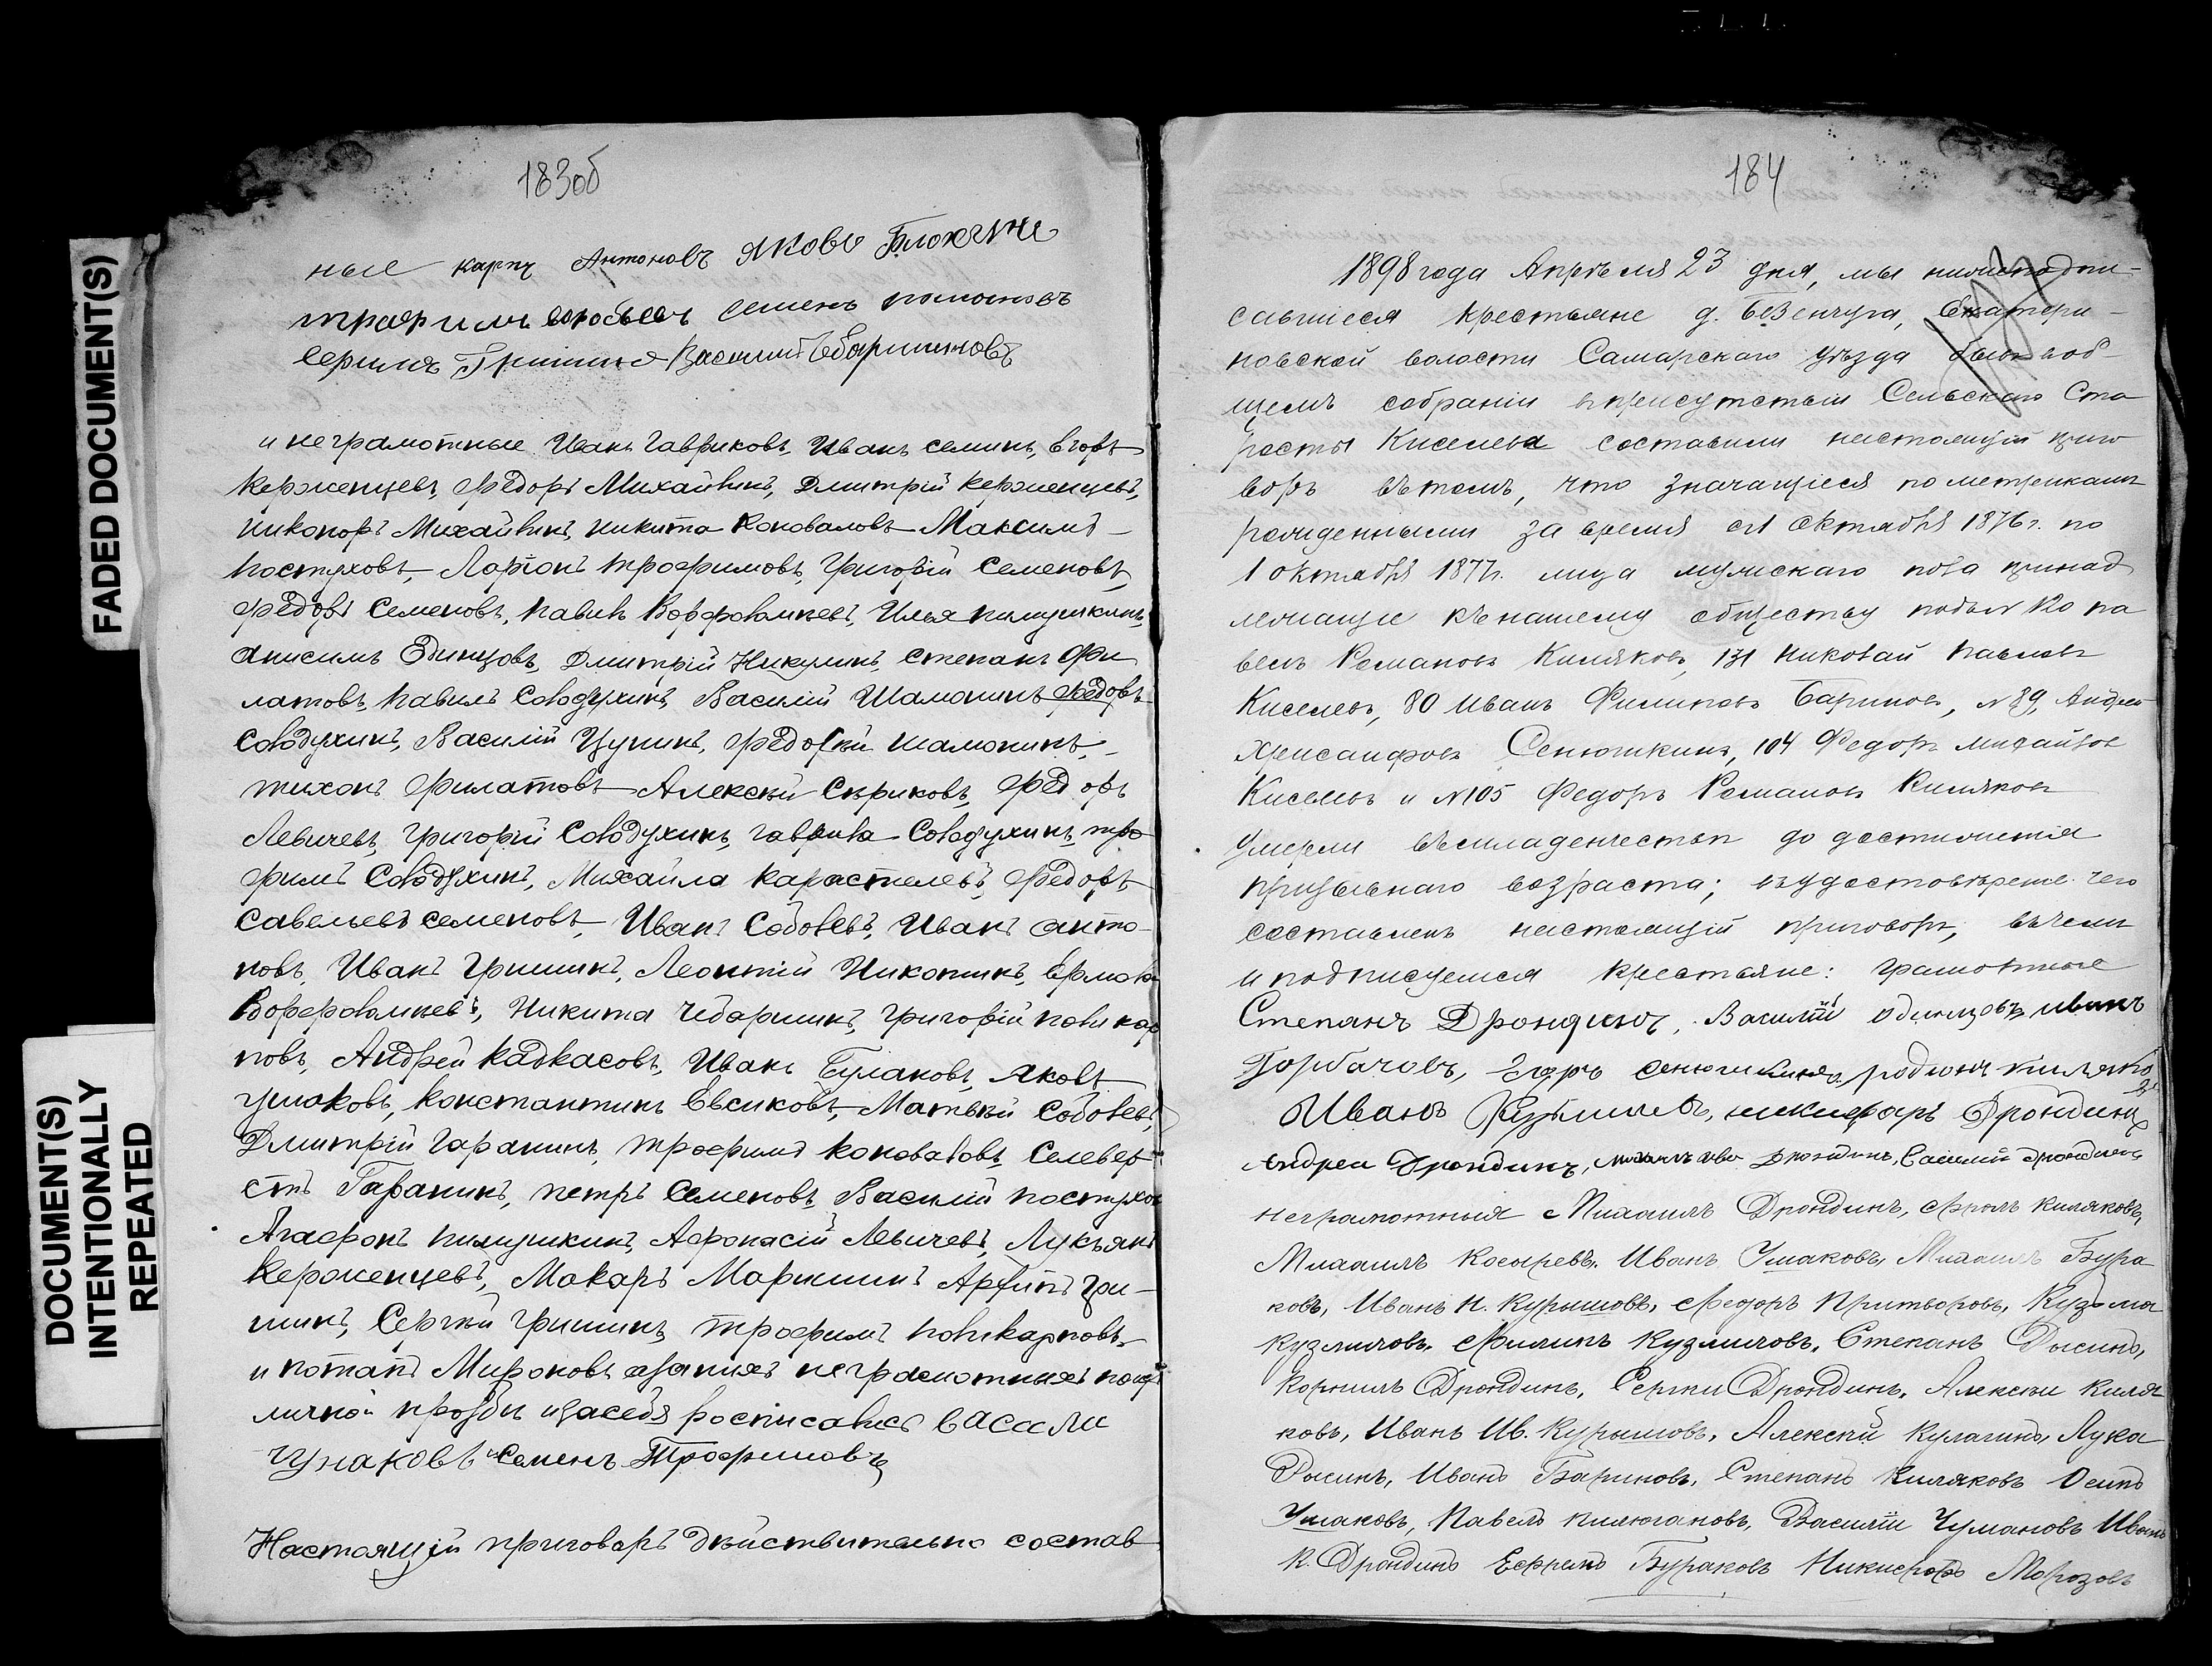 FADED DOCUMENT(S)
DOCUMENT(S)
INTENTIONALLY
REPEATED
183об
ные карпъ Антоновъ Яковъ Блохинъ
трафимъ Семенъ
Гришинъ Василий
и неграмотные Иванъ Гавриковъ, Иванъ Семинъ, Егоръ
Керженцевъ, Федоръ Михайвинъ, Дмитрій Керженцевъ,
Никоноръ Михайвинъ, Никита Коноваловъ Максимъ
Постуховъ, Ларіонъ Трофимовъ, Григорій Семеновъ,
Федоръ Семеновъ, Павилъ Илья Пилушкинъ,
Анисимъ Одинцовъ, Дмитрій Никулинъ, Степанъ Фи
латовъ, Павилъ Солодухинъ, Василій Шамонинъ Федоръ
Солодухинъ, Василій Цупинъ, Шамонинъ,
Тихонъ Филатовъ Алексѣй Скриковъ, Федоръ
Левичевъ, Григорій Солодухинъ, Гаврила Солодухинъ, Тро
фимъ Солодухинъ, Михаила Карастелевъ, Федоръ
Савельевъ Семеновъ, Иванъ Соболевъ, Иванъ Анто
новъ, Иванъ Гришинъ, Леонтій Никонинъ,
Никита Чебаршинъ, Григорій Поликар
повъ, Андрей Кадкасовъ, Иванъ Булановъ, Яковъ
Ушаковъ, Константинъ Евсиковъ, Матвѣй Соболевъ,
Дмитрій Гаранинъ, Трофимъ Коноваловъ, Селевер
стъ Гаранинъ, Петръ Семеновъ, Василій Постухов
Агафонъ Пилушкинъ, Афонасій Левичевъ, Лукьянъ
Керженцевъ, Макаръ Маркинъ Архипъ Гри-
шинъ, Сергѣй Гришинъ, Трофимъ Поликарповъ
и Потапъ Мироновъ неграмотныхъ по ихъ
личной прозбы изасебя росписались Васили
Чунаковъ и Семенъ Трофимовъ
Настоящій приговаръ дѣйствительно состав
184
1898 года Апрѣля 23 дня, мы нижеподпи-
савшіеся крестьяне д. Безенчуга, Екатери-
новской волости Самарскаго уѣзда бывъ воб
щемъ собраніи вприсутствіи Сельскаго Ста
росты Киселева составили настоящій приго
воръ вътомъ, что значащіеся пометрикамъ
рожденными за время съ 1 Октября 1876 г. по
1 октября 1877 г. лица мужскаго пола принад
лежащіе къ нашему обществу подъ № 120 Па
велъ Романовъ Киляковъ, 131 Николай Павловъ
Киселевъ, 80 Иванъ Филиповъ Бариновъ, № 89, Андрей
Хрисанфовъ Сенюшкинъ, 104 Федоръ Михайловъ
Киселевъ и № 105 Федоръ Романовъ Киляковъ
умерли въ младенчествѣ до достиженія
призывнаго возраста; въ удостовѣреніе чего
составленъ настоящій приговоръ, въ чемъ
и подписуемся крестьяне: грамотные
Степанъ Дрондинъ, Василій Одинцовъ Иванъ
Горбачовъ, Егоръ Сенюшкинъ, родионъ Киляко
въ
Иванъ Никифоръ Дрондинъ
Андреи Дрондинъ, Дрондинъ, Василий Дрондинъ
неграмотныя Михаилъ Дрондинъ, Фролъ Киляковъ,
Михаилъ Косыревъ, Иванъ Ушаковъ, Михаилъ Бура
ковъ, Иванъ Н. Курышовъ, Федоръ Притворовъ, Кузьма
Кузмичовъ, Филипъ Кузмичовъ, Степанъ Рысинъ,
Корнилъ Дрондинъ, Сергѣи Дрондинъ, Алексѣи Киля
ковъ, Иванъ Ив. Курышовъ, Алексѣй Кулагинъ, Лука
Рысинъ, Иванъ Бариновъ, Степанъ Киляковъ Осипъ
Ушаковъ, Павелъ Василій Чумаковъ Иванъ
Н. Дрондинъ Ефремъ Бураковъ Никифоръ Морозовъ